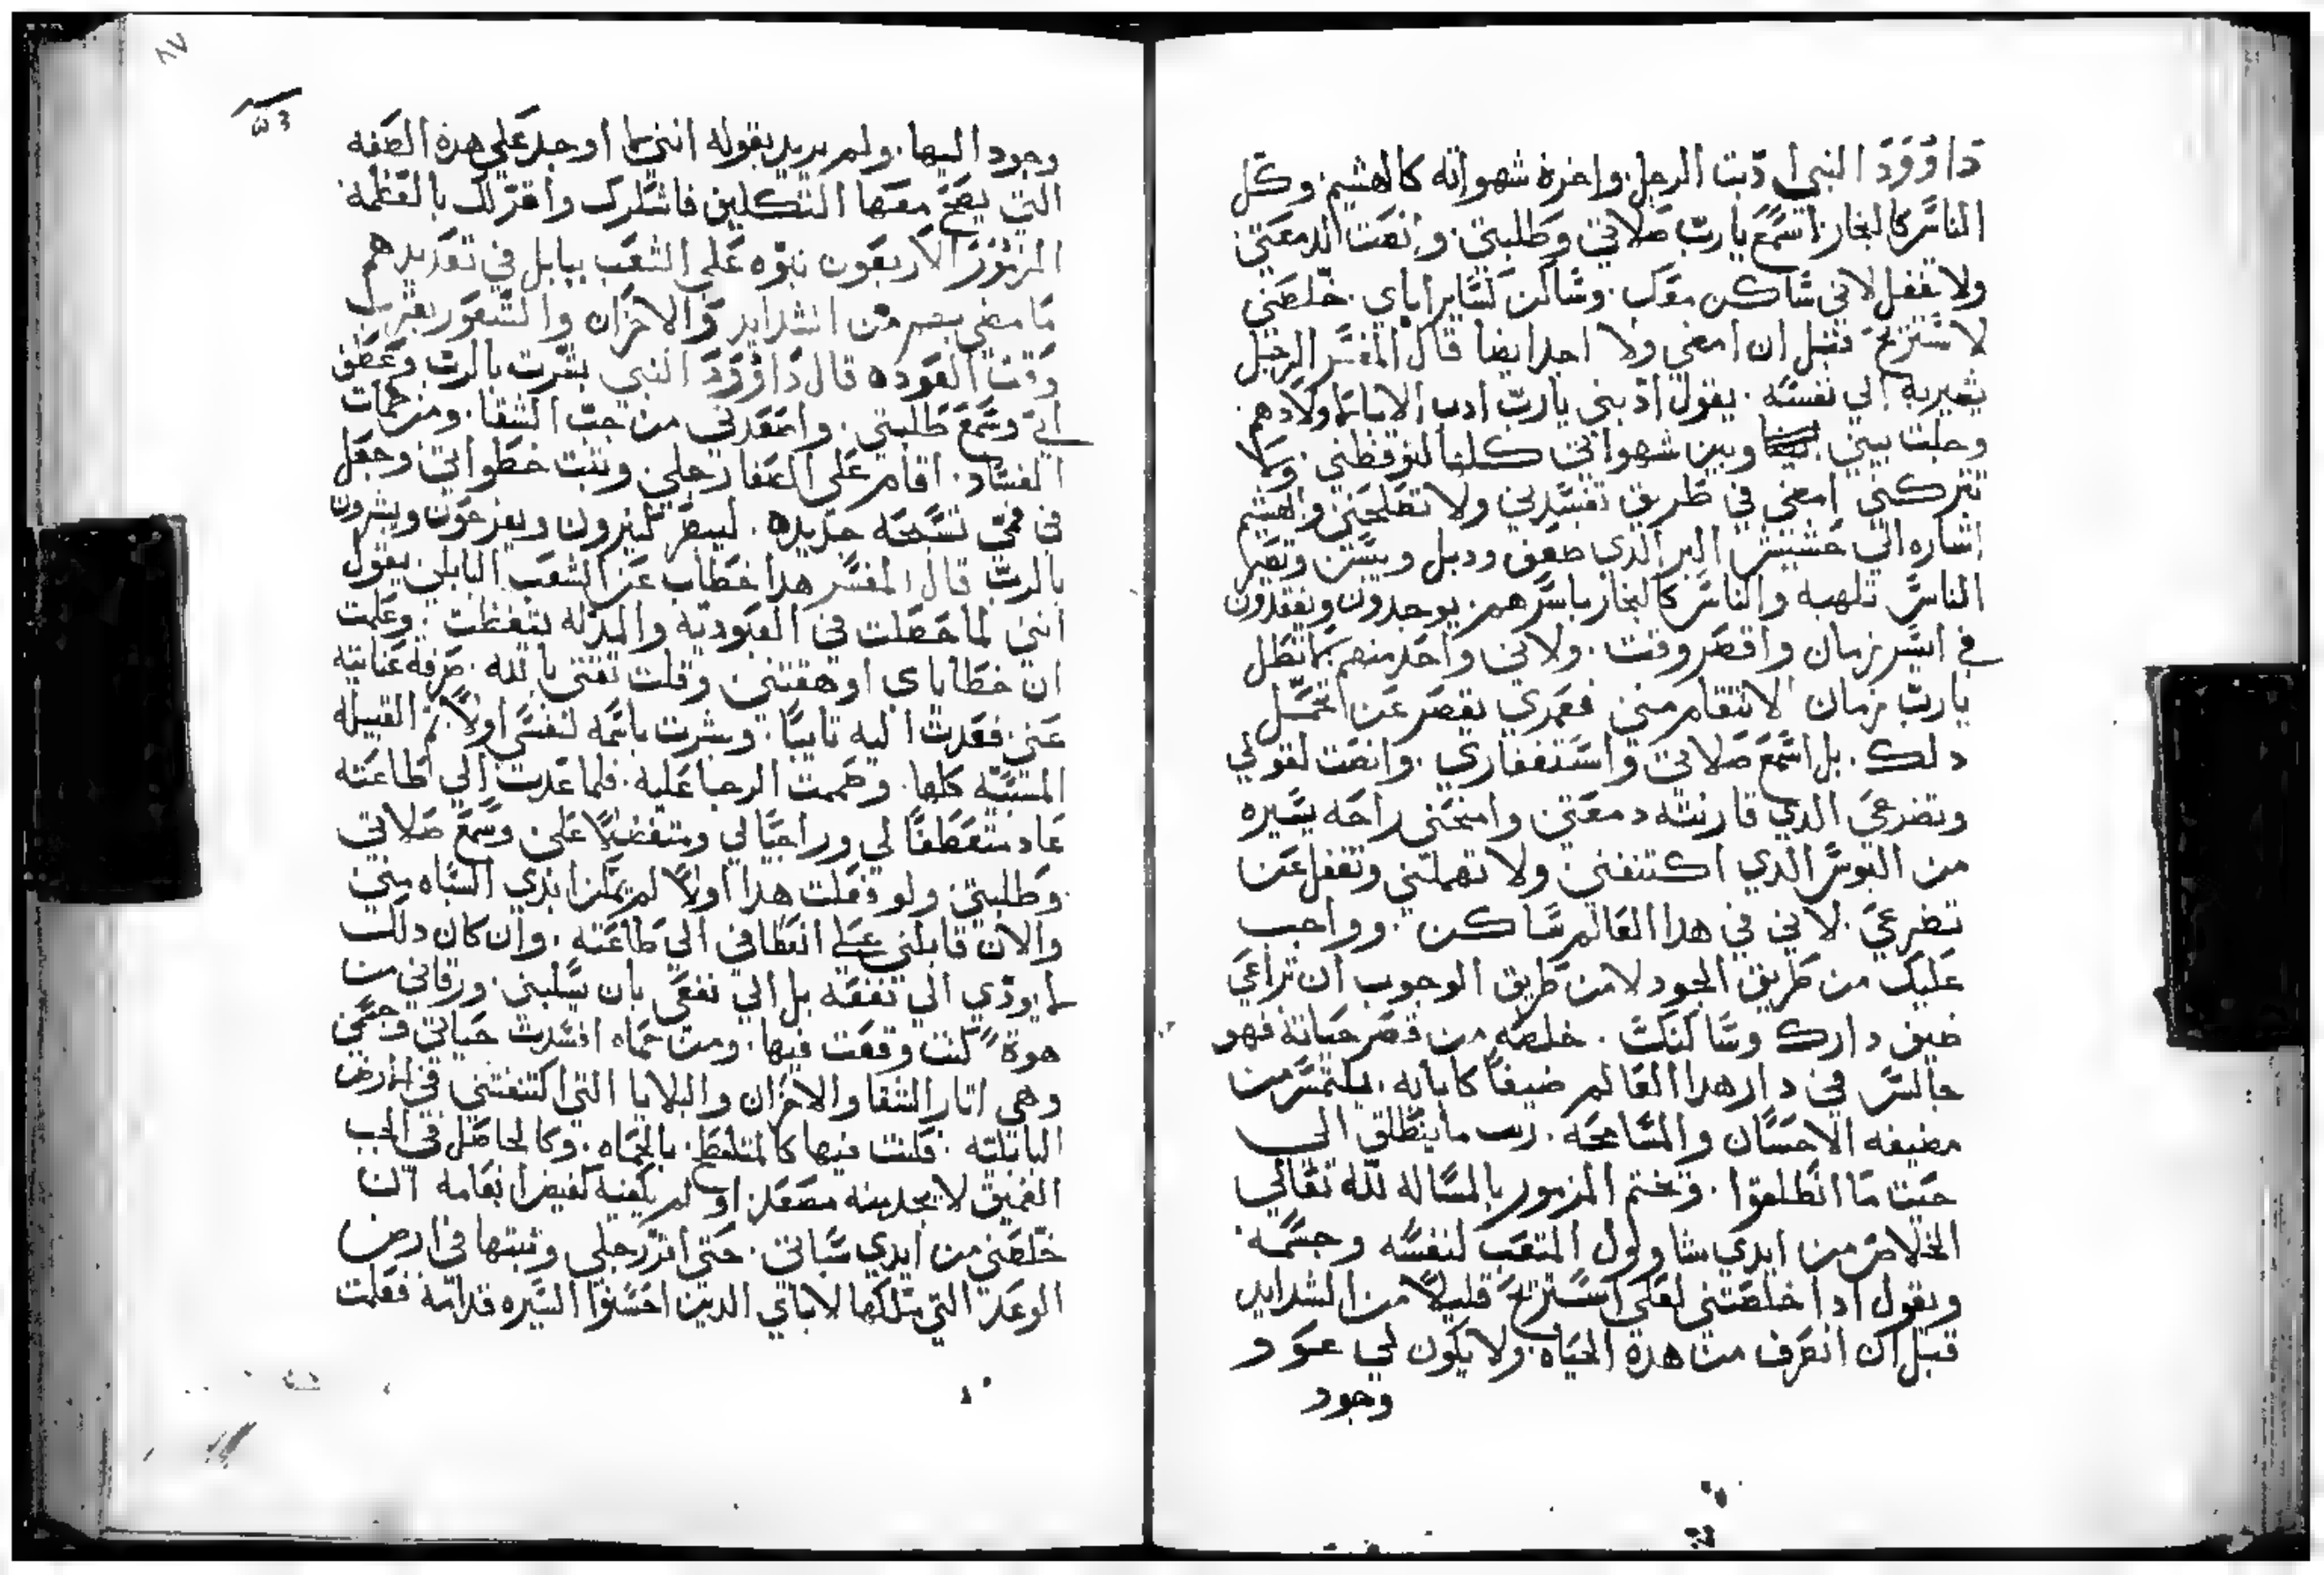 داوود النبي ادبت الرجل. واخزة شهواته كالهشيم. وكل
الناس كالبخار. اسمع يارب صلاتي وطلبتي. وانصت لدمعتي
ولا تغفل لاني ساكن معك. وساكن كساير اباي. خلصني
لاستريح قبل ان امضي ولا اجد ايضا قال المفسر الرجل
يشير به الي نفسه. يقول ادبني يارب ادب الابا اولادهم.
وحلت بيني وبين شهواتي كلها لتوقظني. ولا
تتركني امضي في طريق تفسدني ولا تصلحني والهشيم
اشاره الي حشيش البر الذي ضعف ودبل ويبس وتصير
الناس تلهبه والناس كالبخار باسرهم. يوجدون ويفقدون
في ايسر زمان واقصر وقت. ولاني واحد منهم تطل
يارب زمان الانتقام مني فعمري يقصر عن تحمل
دلك. بل اسمع صلاتي واستغفاري. وانصت لقولي
وتضرعي الدي قارنته دمعتي وامنحني راحه يسيره
من البوس الدي اكتنفني ولا تهملني وتغفل عن
تضرعي. لاني في هدا العالم ساكن. وواجب
عليك من طريق الجود لا من طريق الوجوب ان تراعي
ضيف دارك وساكنك. خلصه من قصر حياته فهو
جالس في دار هدا العالم ضيفا كابايه. يلتمس من
مضيفه الاحسان والمسامحه. ما ينطلق الي
حيت ما انطلقوا. ويختم المزمور بالمساله لله تعالي
الخلاص من ايدي شاوول المتعب لنفسه وجسمه.
ويقول ادا خلصتني لعلي استريح قليلا من الشدايد
قبل ان انصرف من هده الحياه ولا يكون لي عود
وجود
وجود اليها. ولم يريد بقوله انني اوجد علي هده الصفه
التي يصح معها التكلين فاشكرك واقر لك بالعظمه
المزمور الاربعون نبوه علي الشعب ببابل في تعديدهم
ما مضي بهم من الشدايد والاحزان والشعور بقرب
وقت العوده قال داوود النبي بشرت بالرب وعطف
الي وسمع طلبتي. واصعدني من جب الشقا. ومن حمات
الفساد. اقام علي الصفا رجلي وتبت خطواتي وجعل
في فمي تسبحه جديده. لينظر كثيرون ويفزعون ويبشرون
بالرب قال المفسر هدا خطاب عن الشعب البابلي يقول
انني لما حصلت في العبوديه والمدله تيقظت. وعلمت
ان خطاياي اوهقتني وقلت تقتي بالله. صرفه عنايته
عني فعدت اليه تايبا. وبشرت باسمه لنفسي اولا تم القبيله
المسبيه كلها. وضممت الرجا عليه. فلما عدت الي طاعته
عاد متعطفا لي وراجيا لي ومتفضلا علي وسمع صلاتي
وطلبتي ولو فعلت هدا اولا لم تملن ايدي السباه مني
والان قابلني علي انعطافي الي طاعته. وان كان دلك
لا يودي الي نفعه بل الي نفعي بان سلبني. ورقاني من
هوة كنت وقعت فيها. ومن حماه افسدت حياتي وجسمي
وهي اتار الشقا والاحزان والبلايا التي اكتنفتني في ارض
البابليه. فكنت فيها كالمتلطخ بالحماه. وكالحاصل في الجب
العميق لا يجد منه مصعد او لم يكفيه كفيض انعامه ان
خلصني من ايدي سباتي. حتي اتر رجلي وتبتها في ارض
الوعد التي ملكها لاباي الدين احسنوا السيره قدامه فعلت